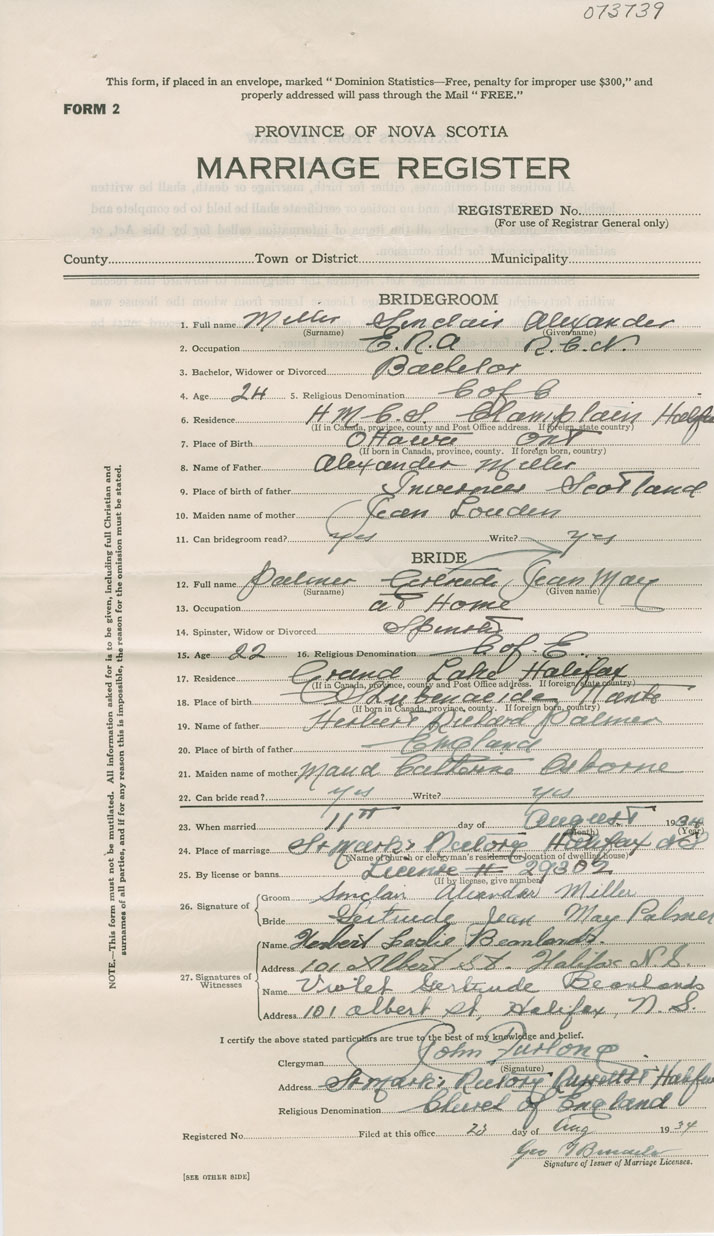 073739
This form, if placed in an envelope, marked “ Dominion Statistics—Free, penalty for improper use $300,” and
properly addressed will pass through the Mail “ FREE.”
FORM 2
PROVINCE OF NOVA SCOTIA
MARRIAGE REGISTER
REGISTERED No.
(For use of Registrar General only)
County Town or District Municipality
BRIDEGROOM
1. Full name Miller Sinclair Alexander
(Surname) (Given name)
2. Occupation E.R.A R.C.N.
3. Bachelor, Widower or Divorced Bachelor
4. Age 24 5. Religious Denomination C of E
6. Residence H M C.S. Champlain Halifax
(If in Canada, province, county and Post Office address. If foreign, state country)
7. Place of Birth Ottawa Ont
(If born in Canada, province, county. If foreign born, country)
8. Name of Father Alexander Miller
9. Place of birth of father Inverness Scotland
10. Maiden name of mother Jean Louden
11. Can bridegroom read? yes Write? yes
BRIDE
12. Full name Palmer Gertrude Jean May
(Surname) (Given name)
13. Occupation at Home
14. Spinster, Widow or Divorced Spinster
15. Age 22 16. Religious Denomination C of E.
17. Residence Grand Lake Halifax
(If in Canada, province, county and Post Office address. If foreign, state country)
18. Place of birth Shubenacadie Hants
(If born in Canada, province, county. If foreign born, country)
19. Name of father Herbert Richard Palmer
20. Place of birth of father England
21. Maiden name of mother Maud Catherine Osborne
22. Can bride read? yes Write? yes
23. When married 11th day of August 1934
(Month) (Year)
24. Place of marriage St Mark's Rectory Halifax NS
(Name of church or clergyman's residence or location of dwelling house)
25. By license or banns License # 29302
(If by license, give number)
26. Signature of Groom Sinclair Alexander Miller
Bride Gertrude Jean May Palmer
27. Signatures of Witnesses
Name Herbert Leslie Beanlands.
Address 101 Albert St. Halifax N.S.
Name Violet Gertrude Beanlands
Address 101 Albert St, Halifax, N.S.
I certify the above stated particulars are true to the best of my knowledge and belief.
Clergyman John Furlong
(Signature)
Address St Mark's Rectory Russell St Halifax
Religious Denomination Church of England
Registered No. Filed at this office 23 day of Aug 1934
Geo
Signature of Issuer of Marriage Licenses.
[SEE OTHER SIDE]
NOTE.—This form must not be mutilated. All information asked for is to be given, including full Christian and
surnames of all parties, and if for any reason this is impossible, the reason for the omission must be stated.